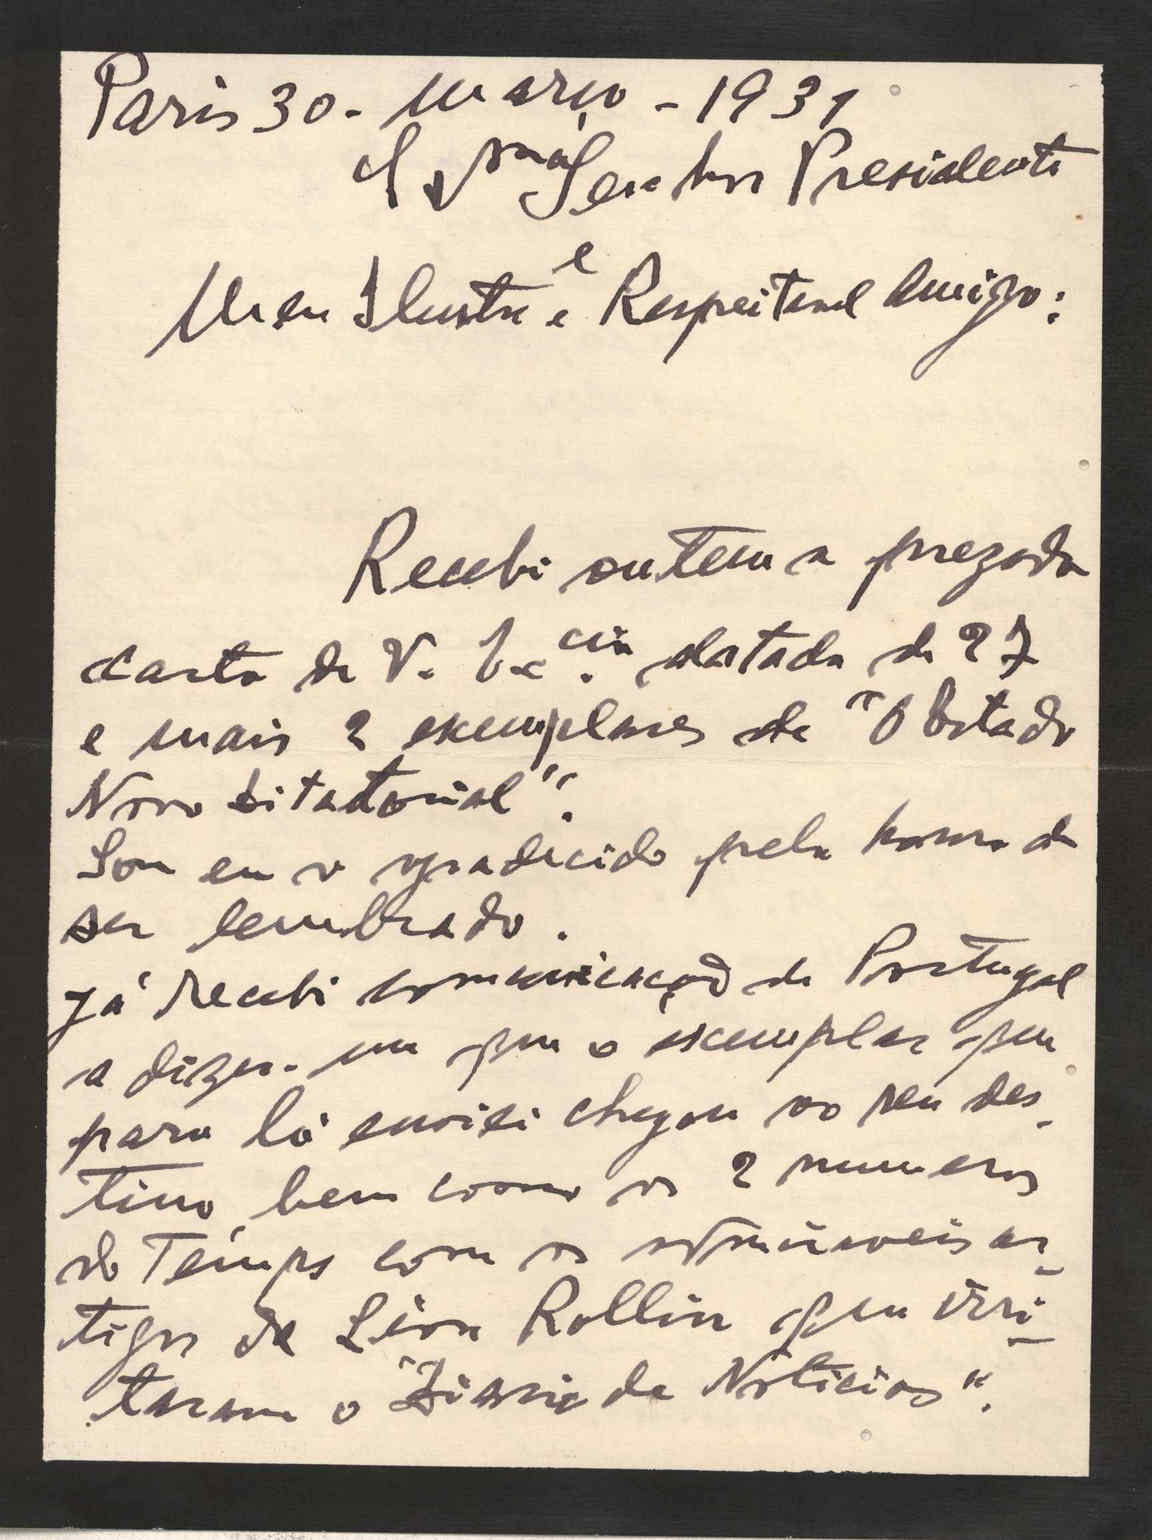 Paris 30 - Março - 1931
Senhor Presidente
e
Meu Ilustre e Respeitavel Amigo:
Recebi ontem a prezada
carta de V. Ex.cia datada de 27
e mais 2 exemplares de "O Estado
Novo Ditatorial".
Sou eu o agradecido pela honra de
ser lembrado.
Já recebi comunicação de Portugal
a dizer-me que o exemplar que
para lá enviei chegou ao seu des-
tino, bem como os 2 numeros
do Temps com os admiraveis ar-
tigos de Léon Rollin que irri-
taram o "Diario de Noticias".